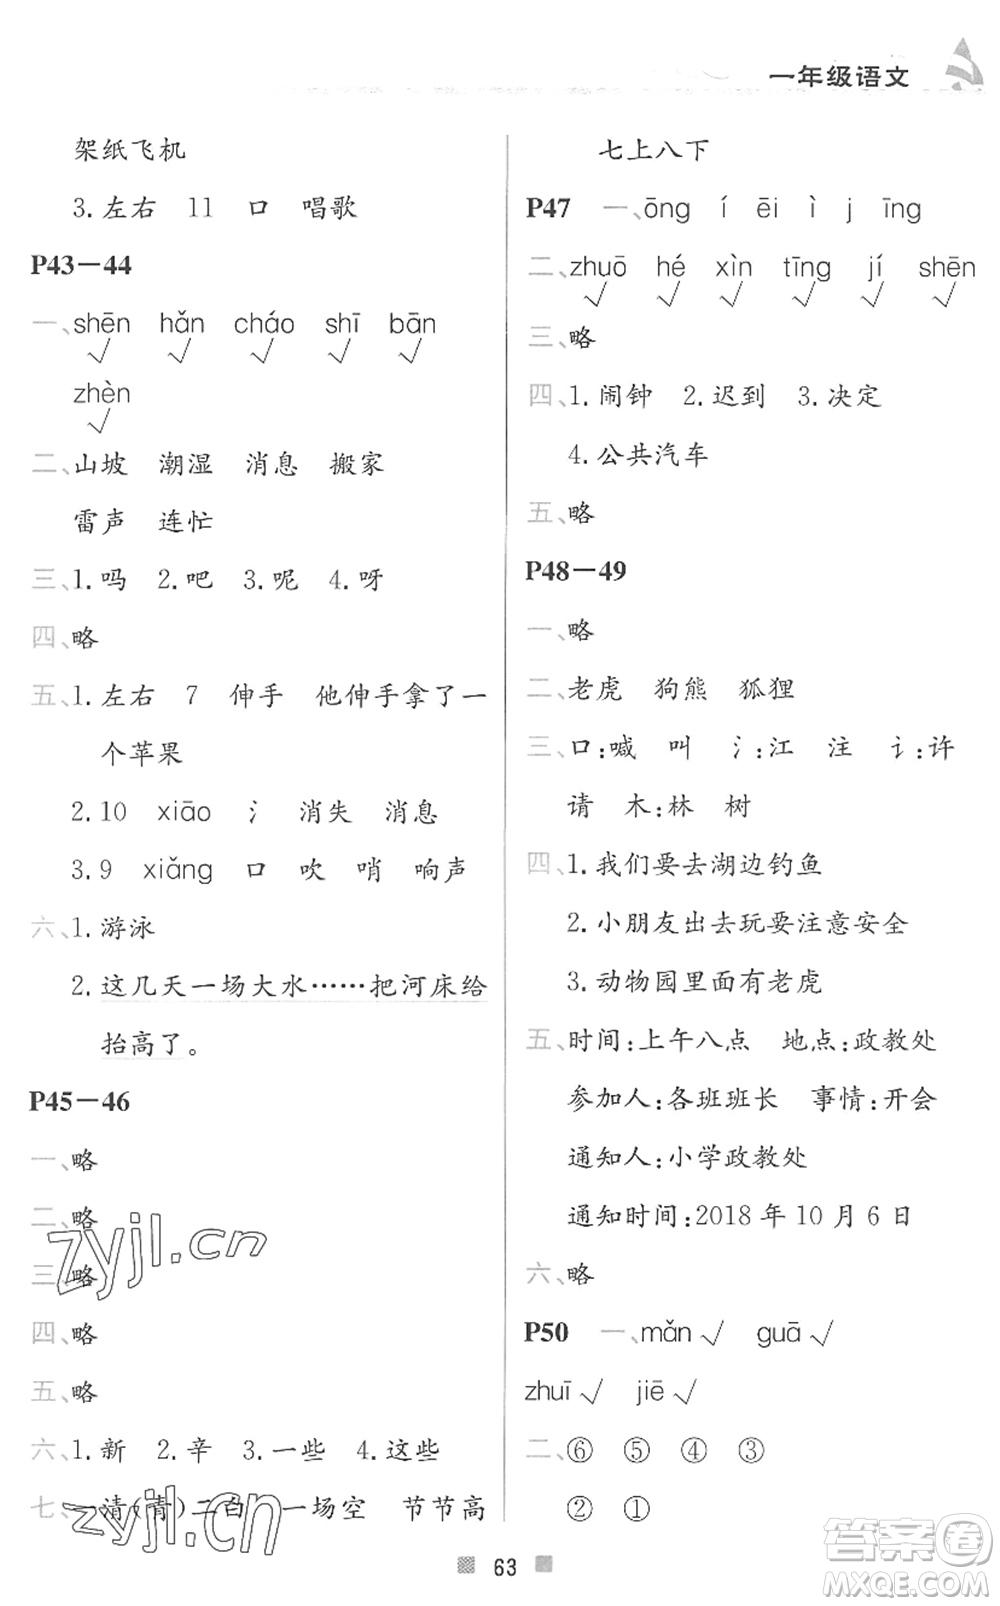 一年级语文
架纸飞机
3.左右 11 口 唱歌
P43－44
一、shēn hǎn cháo shī bān
√ √ √ √ √
zhèn
√
二、山坡 潮湿 消息 搬家
雷声 连忙
三、1.吗 2.吧 3.呢 4.呀
四、略
五、1.左右 7 伸手 他伸手拿了一
个苹果
2.10 xiāo 氵 消失 消息
3.9 xiǎng 口 吹 哨 响声
六、1.游泳
2.这几天一场大水……把河床给
抬高了。
P45－46
一、略
二、略
三、略
四、略
五、略
六、1.新 2.辛 3.一些 4.这些
七、一清(青)二白 一场空 节节高
七上八下
P47 一、ōng í ēi ì j īng
二、zhuō hé xìn tīng jí shēn
√ √ √ √ √ √
三、略
四、1.闹钟 2.迟到 3.决定
4.公共汽车
五、略
P48－49
一、略
二、老虎 狗熊 狐狸
三、口:喊 叫 氵:江 注 讠:许
请 木:林 树
四、1.我们要去湖边钓鱼
2.小朋友出去玩要注意安全
3.动物园里面有老虎
五、时间:上午八点 地点:政教处
参加人:各班班长 事情:开会
通知人:小学政教处
通知时间:2018年10月6日
六、略
P50 一、mǎn √ guā √
zhuī √ jiē √
二、⑥ ⑤ ④ ③
② ①
63
zyjl.cn
zyjl.cn
答案圈
MXQE.COM